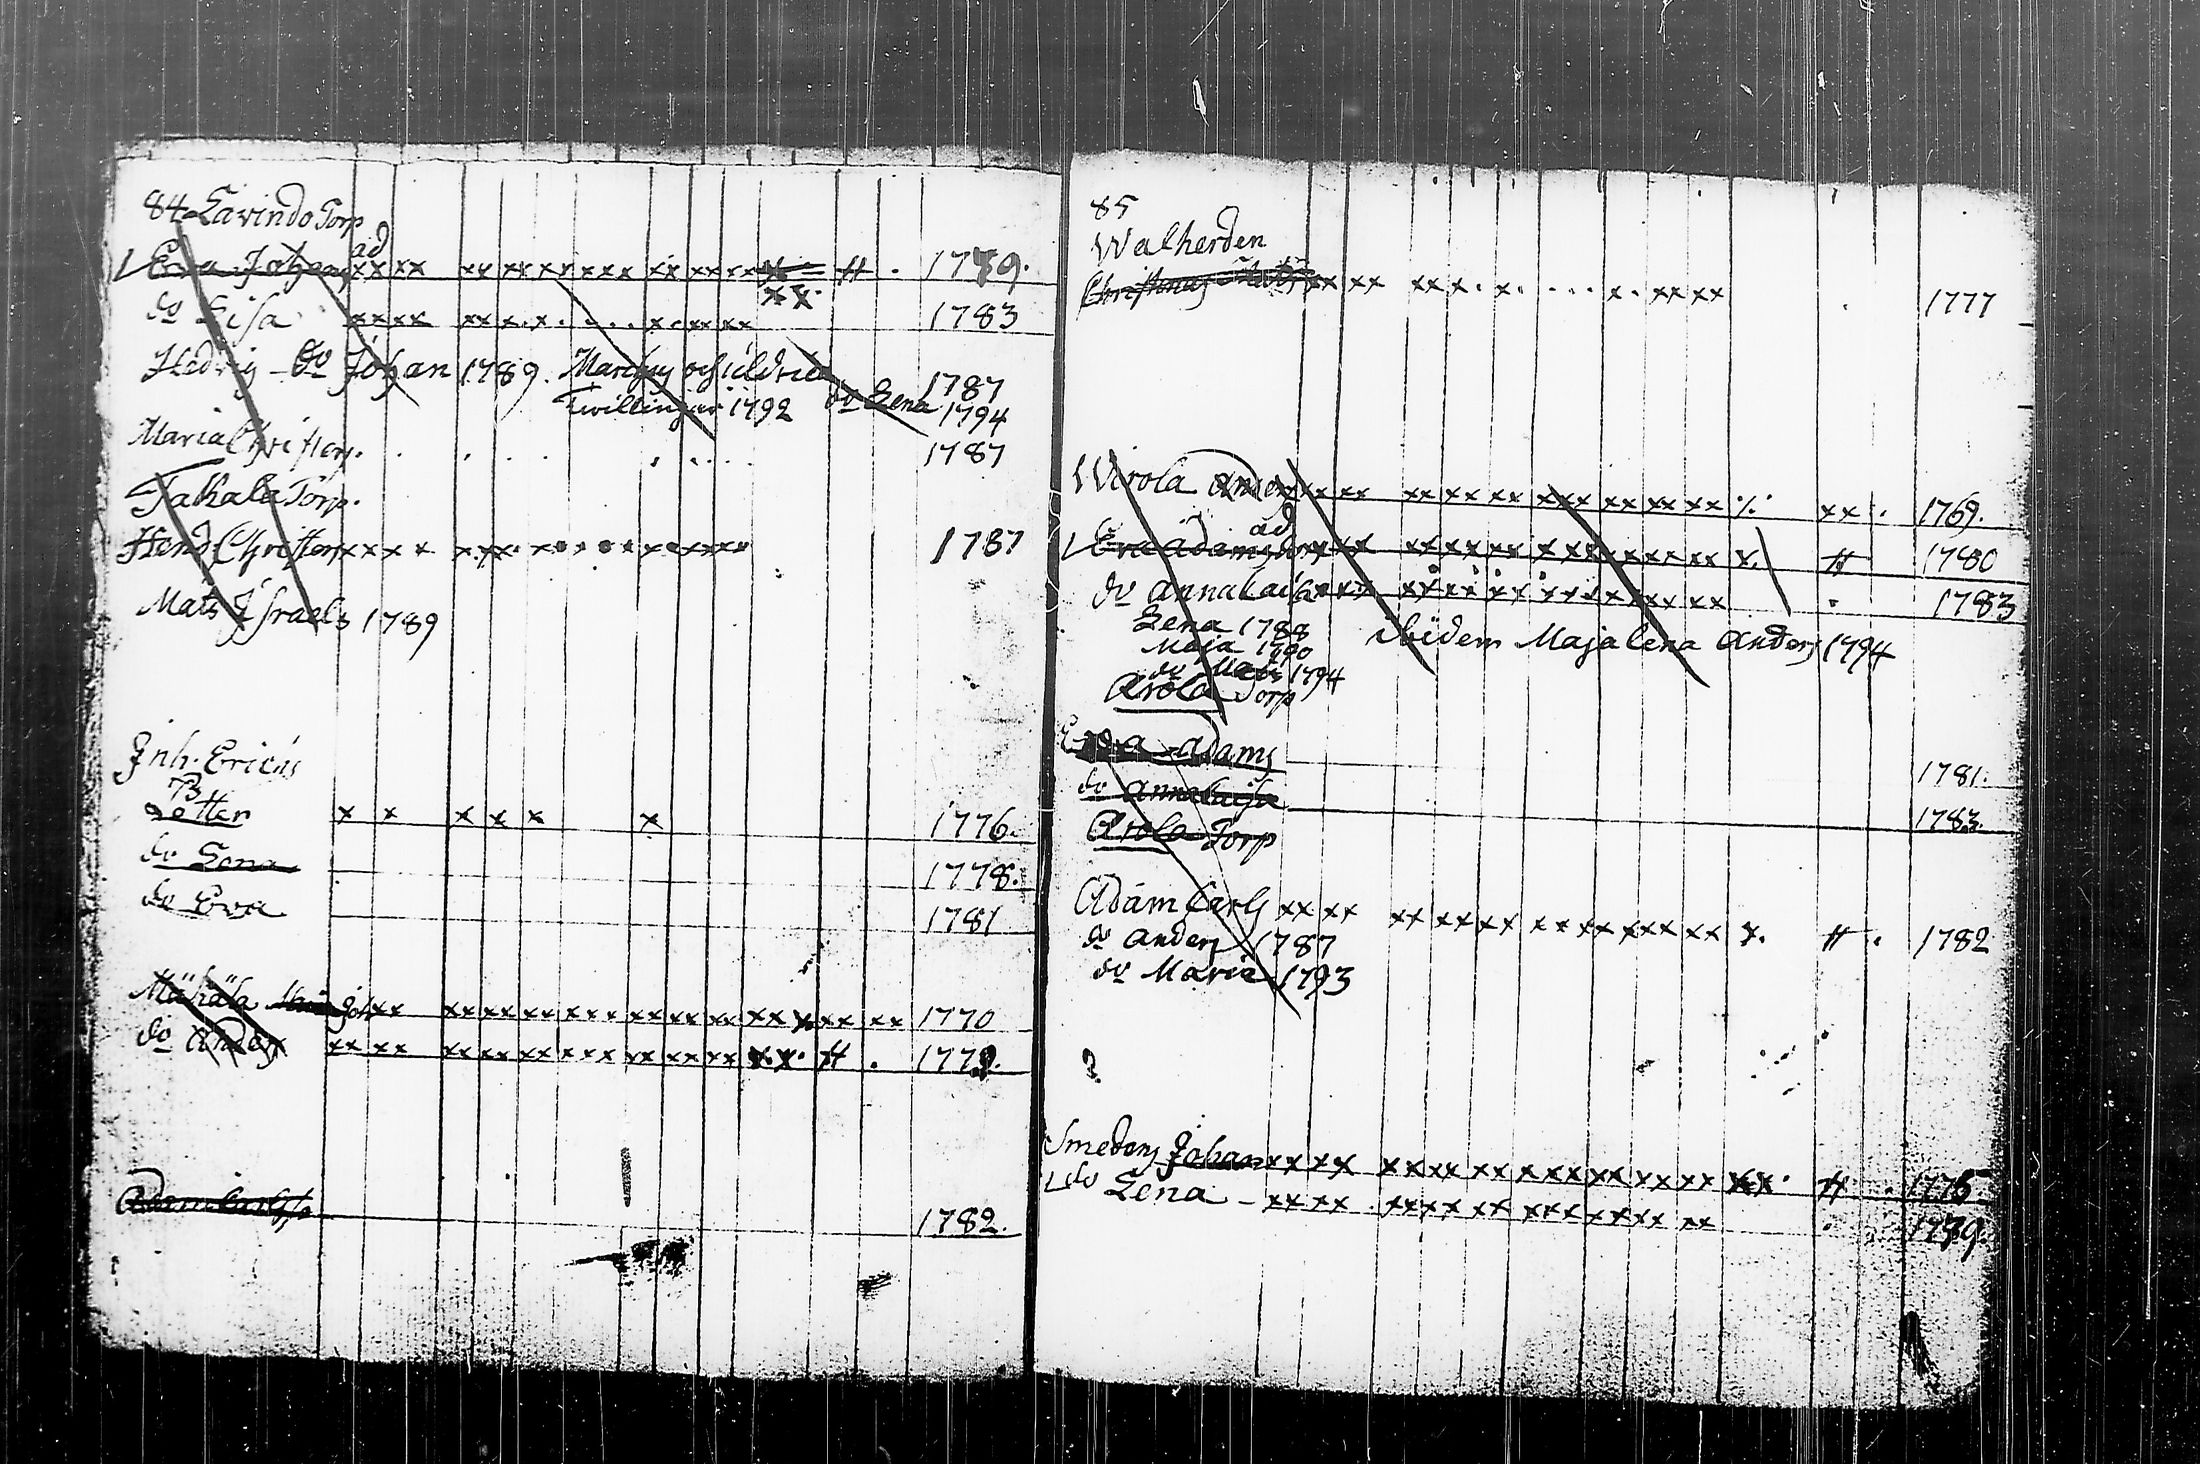 84 Lavindo Torp
Eva Johans ad xx xx xx xx xx xxx xx xx xx # . 1779.
xx.
do Lisa xx xx xx x . x . . . . x . xx xx 1783
Hedvig do Johan 1789. 1787
Twillingar 1792 do Lena 1794
Maria Christers. 1787
Takala Torp.
Hend. Christers xx x x x . xx . x x . xxx 1787
Mats Israels 1789
Inh. Erichs
Dotter x x x x x x 1776.
do Lena 1778.
do Eva 1781
Mähälä xx xx xx xx xxx xx xx xx xx x xx xx 1770
do Anders xx xx xx xx xx xxx xx xx xx xx . # . 1779.
Adam Carls 1782.
85
Walherden
Christens Mats xx xx xx x . x . . . . x . xx xx . 1777
Wirola Anders xx xx xx xx xx xxx xx xx xx ·/· xx . 1769.
Eva Adams ad xx xx xx xx xxx xx xx xx x. # 1780
do Annalaisa xx xx xx xx xx xx xx . 1783
Lena 1788 ibidem Majalena Anders 1794
Maja 1790
do Mats 1794
Arola Torp
Eva Adams 1781.
do Annalaisa 1783.
Arola Torp
Adam Carls xx xx xx xx xx x xx xx xx xx x. # . 1782
do Anders 1787
do Maria 1793
Smedens Johan xx xx xx xx xx xxx xx xx xx xx . # . 1775.
do Lena - xx xx . xx xx xx xxx xx xx xx . 1779.